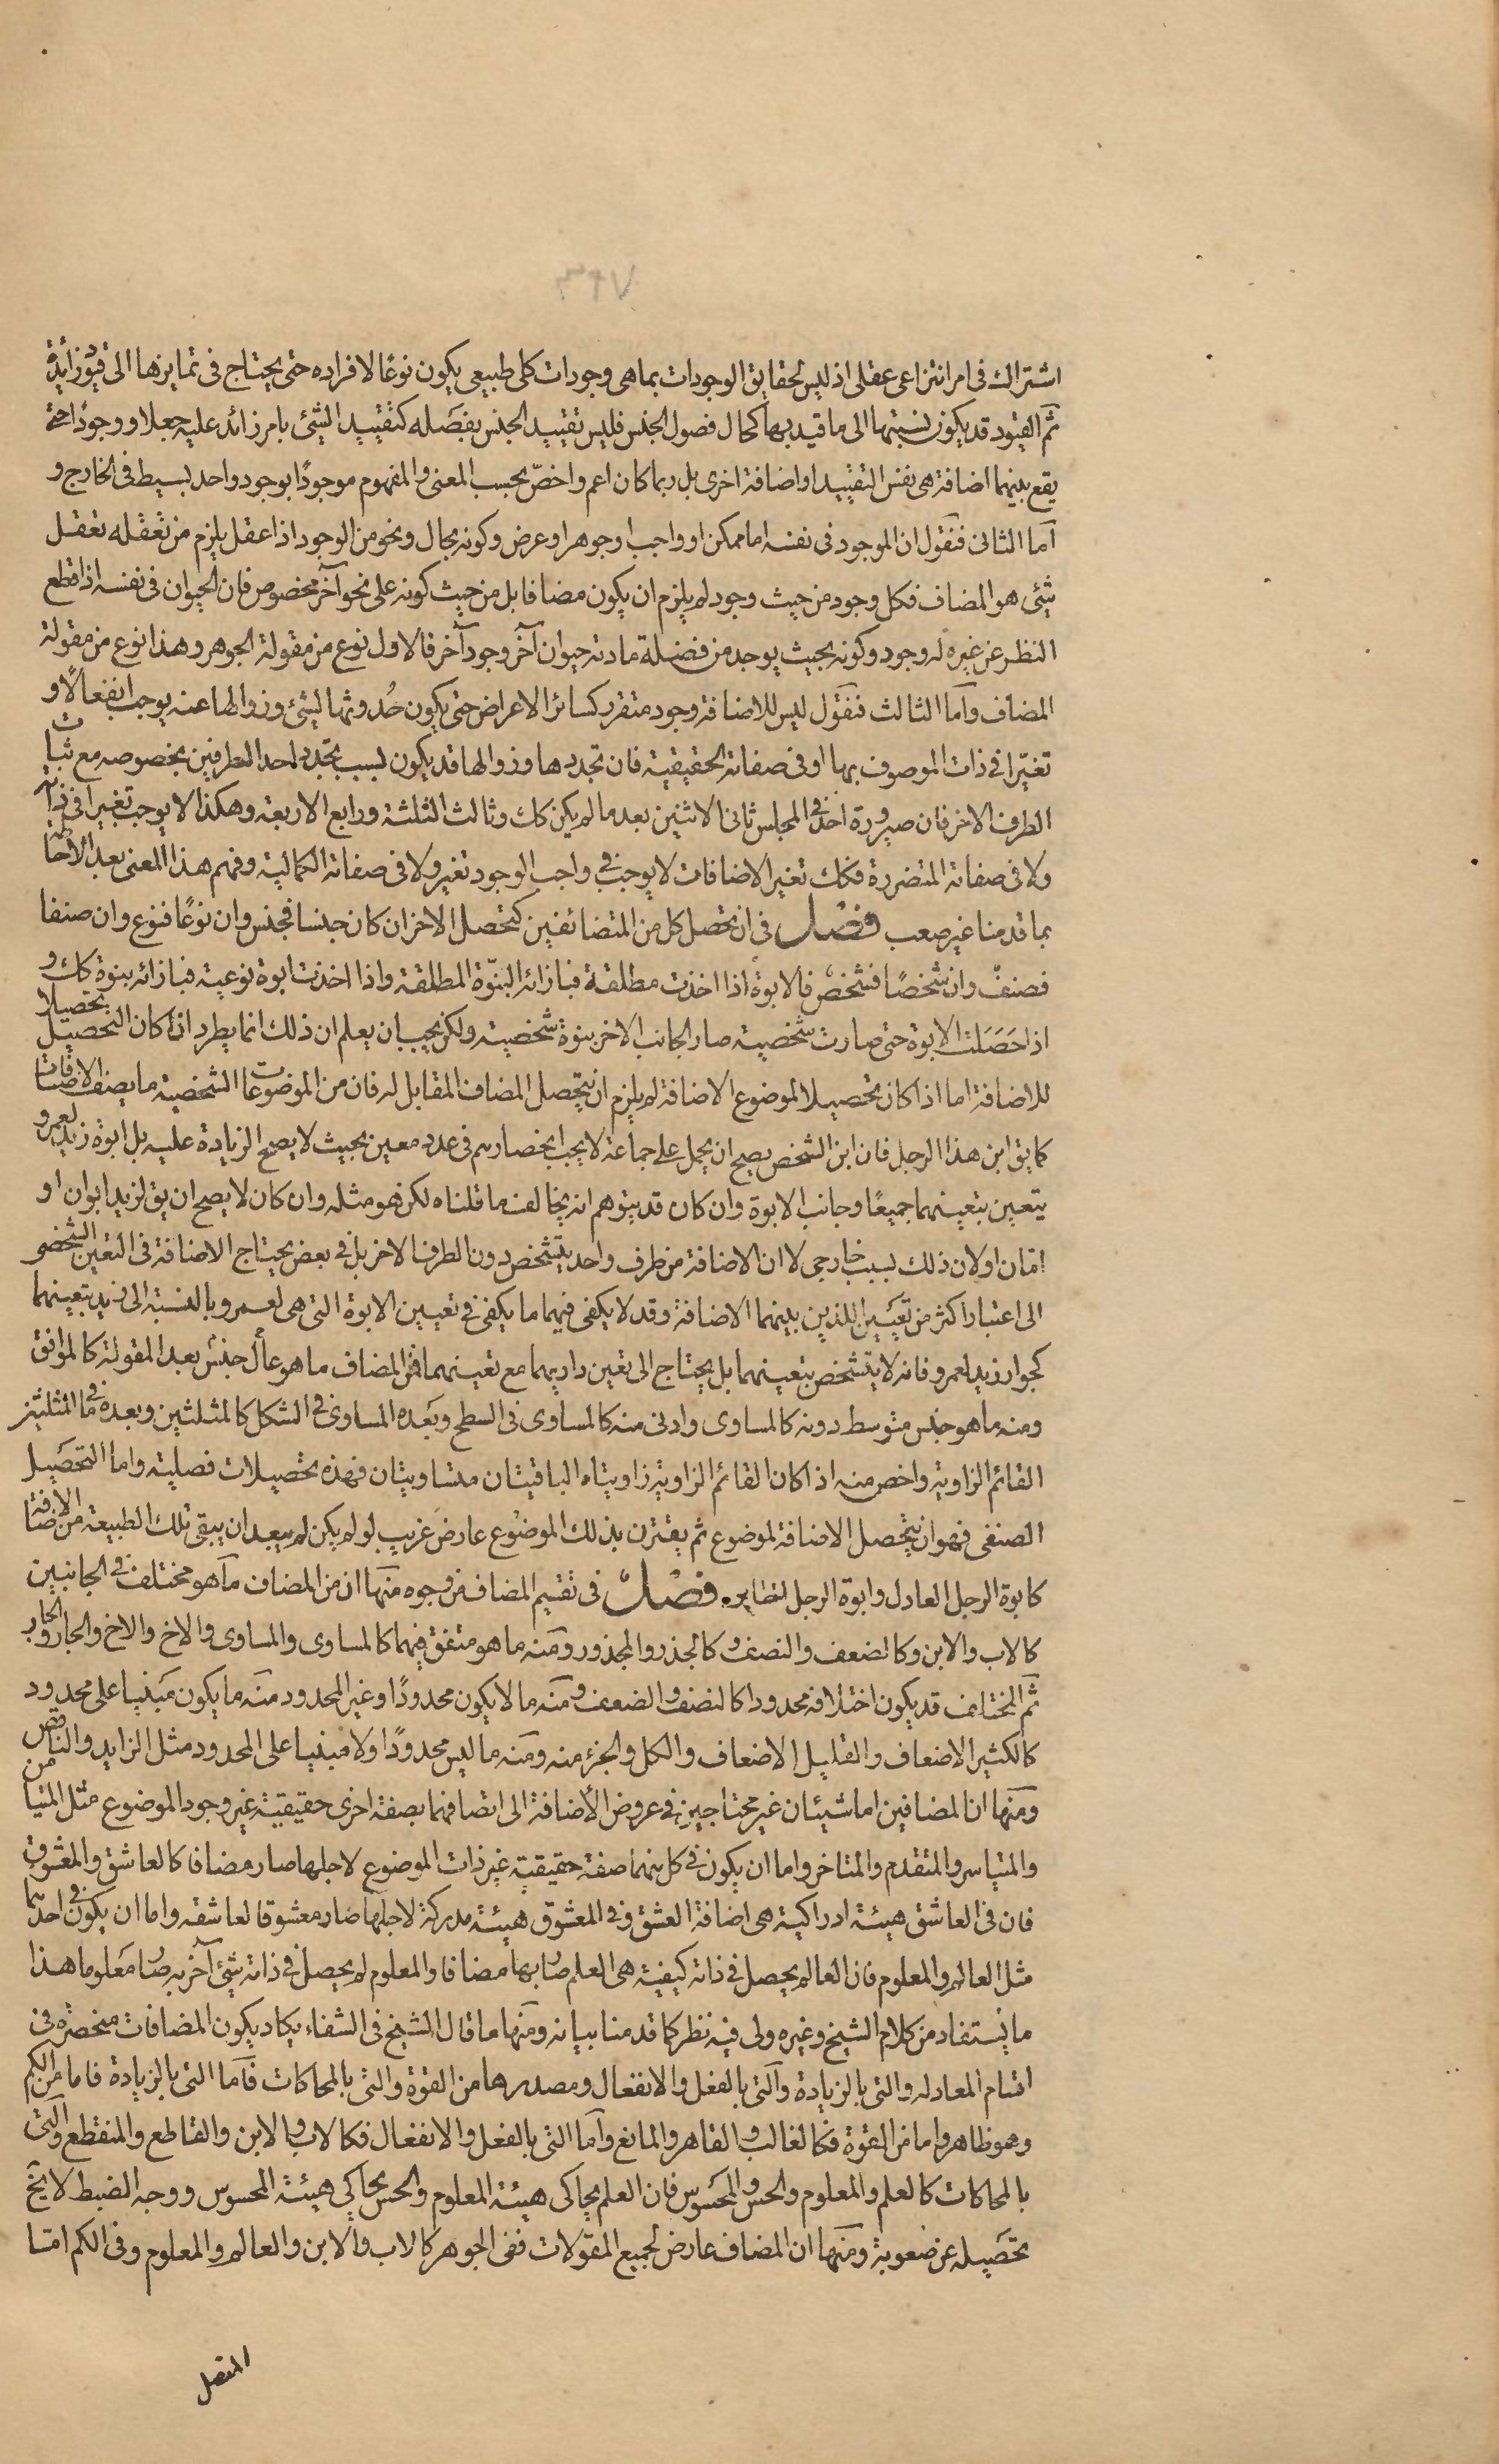 ٣٤٧
اشتراك فى امر انتزاعى عقلى اذ ليس لحقايق الوجودات بما هى وجودات كلى طبيعى يكون نوعًا لافراده حتى يحتاج فى تمايزها الى قيود زائدة
ثم القيود قد يكون نسبتها الى ما قيد بها كحال فصول الجنس فليس تقييد الجنس بفصله كتقييد الشئ بامر زائد عليه جعلا ووجودًا حتى
يقع بينهما اضافة هى نفس التقييد او اضافة اخرى بل ربما كان اعم واخصّ بحسب المعنى والمفهوم موجودًا بوجود واحد بسيط فى الخارج و
اما الثانى فنقول ان الموجود فى نفسه اما ممكن او واجب او جوهر او عرض وكونه بحال ونحو من الوجود اذا عقل يلزم من تعقله تعقل
شئ هو المضاف فكل وجود من حيث وجود لم يلزم ان يكون مضافا بل من حيث كونه على نحو آخر مخصوص فان الحيوان فى نفسه اذا قطع
النظر عن غيره له وجود وكونه بحيث يوجد من فضلة مادته حيوان آخر وجود آخر فالاول نوع من مقولة الجوهر وهذا نوع من مقولة
المضاف واما الثالث فنقول ليس للاضافة وجود متقرر كسائر الاعراض حتى يكون حُدوثها لشئ وزوالها عنه يوجب انفعالًا و
تغيّرا فى ذات الموصوف بها او فى صفاته الحقيقية فان تجددها وزوالها قد يكون بسبب تجدد احد الطرفين بخصوصه مع ثبات
الطرف الاخر فان صيرورة احد فى المجلس ثانى الاثنين بعد ما لم يكن كك وثالث الثلثة ورابع الاربعة وهكذا لا يوجب تغيرا فى ذاته
ولا فى صفاته المتضررة فكك تغير الاضافات لا يوجب فى واجب الوجود تغير ولا فى صفاته الكمالية وفهم هذا المعنى بعد الاحاطة
بما قدمنا غير صعب فصل فى ان تحصل كل من المتضائفين كتحصل الاخر ان كان جنسا فجنس وان نوعًا فنوع وان صنفا
فصنفٌ وان شخصًا فشخصٌ فالابوة اذا اخذت مطلقة فبازائه البنوّة المطلقة واذا اخذت ابوة نوعية فبازائه بنوة كك و
اذا حَصَلت الابوة حتى صارت شخصية صار الجانب الاخر بنوة شخصية ولكن يجب ان يعلم ان ذلك انما يطرد اذا كان التحصيل تحصيلا
للاضافة اما اذا كان تحصيلا لموضوع الاضافة لم يلزم ان يتحصل المضاف المقابل له فان من الموضوعات الشخصية ما يضف الاضافات
كما يق ابن هذا الرجل فان ابن الشخص يصح ان يحمل على جماعة لا يجب انحصارهم فى عدد معين بحيث لا يصح الزيادة عليه بل ابوة زيد لعمرو
يتعين بتعينهما جميعًا وجانب الابوة وان كان قد يتوهم انه يخالف ما قلناه لكن هو مثله وان كان لا يصح ان يق لزيد ابوان او
امّان او لان ذلك بسبب خارجى لا ان الاضافة من طرف واحد يتشخص دون الطرف الاخر بل فى بعض يحتاج الاضافة فى التعين الشخصى
الى اعتبار اكثر من تعيين اللذين بينهما الاضافة وقد لا يكفى فيهما ما يكفى فى تعيين الابوة التى هى لعمرو بالنسبة الى زيد بتعينهما
كجوار زيد لعمرو فانه لا يتشخص بتعينهما بل يحتاج الى تعين داريهما مع تعينهما فمن المضاف ما هو عال جنس بعد المقولة كالموافق
ومنه ما هو جنس متوسط دونه كالمساوى وادنى منه كالمساوى فى السطح وبعده المساوى فى الشكل كالمثلثين وبعده فى المثلثين
القائم الزاوية واخص منه اذا كان القائم الزاوية زاويتاه الباقيتان متساويتان فهذه تحصيلات فصلية واما التحصيل
الصنفى فهو ان يتحصل الاضافة لموضوع ثم يقترن بذلك الموضوع عارض غريب لو لم يكن لم يبعد ان يبقى تلك الطبيعة من الاضافة
كابوة الرجل العادل وابوة الرجل لنظايره فصل فى تقسيم المضاف من وجوه منها ان من المضاف ما هو مختلف فى الجانبين
كالاب والابن وكالضعف والنصف وكالجذر والمجذور ومنه ما هو متفق فيهما كالمساوى والمساوى والاخ والاخ والجار والجار
ثم المختلف قد يكون اختلافه محدودا كالنصف والضعف ومنه ما لا يكون محدودًا وغير المحدود منه ما يكون مبنيا على محدود
كالكثير الاضعاف والقليل الاضعاف والكل والجزء منه ومنه ما ليس محدودًا ولا مبنيا على المحدود مثل الزايد والناقص
ومنها ان المضافين اما شيئان غير محتاجين فى عروض الاضافة الى اتصافهما بصفة اخرى حقيقية غير وجود الموضوع مثل المتيامن
والمتياسر والمتقدم والمتاخر واما ان يكون فى كل منهما صفة حقيقية غير ذات الموضوع لاجلها صار مضافا كالعاشق والمعشوق
فان فى العاشق هيئة ادراكية هى اضافة العشق وفى المعشوق هيئة مدركة لاجلها صار معشوقا لعاشقه واما ان يكون فى احديهما
مثل العالم والمعلوم فان العالم يحصل فى ذاته كيفية هى العلم صار بها مضافا والمعلوم لم يحصل فى ذاته شئ آخر به صار معلوما هذا
ما يستفاد من كلام الشيخ وغيره ولى فيه نظر كما قدمنا بيانه ومنها ما قال الشيخ فى الشفاء يكاد يكون المضافات منحصرة فى
اقسام المعادله والتى بالزيادة والتى بالفعل والانفعال ومصدرها من القوة والتى بالمحاكات فاما التى بالزيادة فاما من الكم
وهو ظاهر واما من القوة فكالغالب والقاهر والمانع واما التى بالفعل والانفعال فكالاب والابن والقاطع والمنقطع والتى
بالمحاكات كالعلم والمعلوم والحس والمحسوس فان العلم يحاكى هيئة المعلوم والحس يحاكى هيئة المحسوس ووجه الضبط لا يخ
تحصيله عن صعوبة ومنها ان المضاف عارض لجميع المقولات ففى الجوهر كالاب والابن والعالم والمعلوم وفى الكم امّا
المتصل